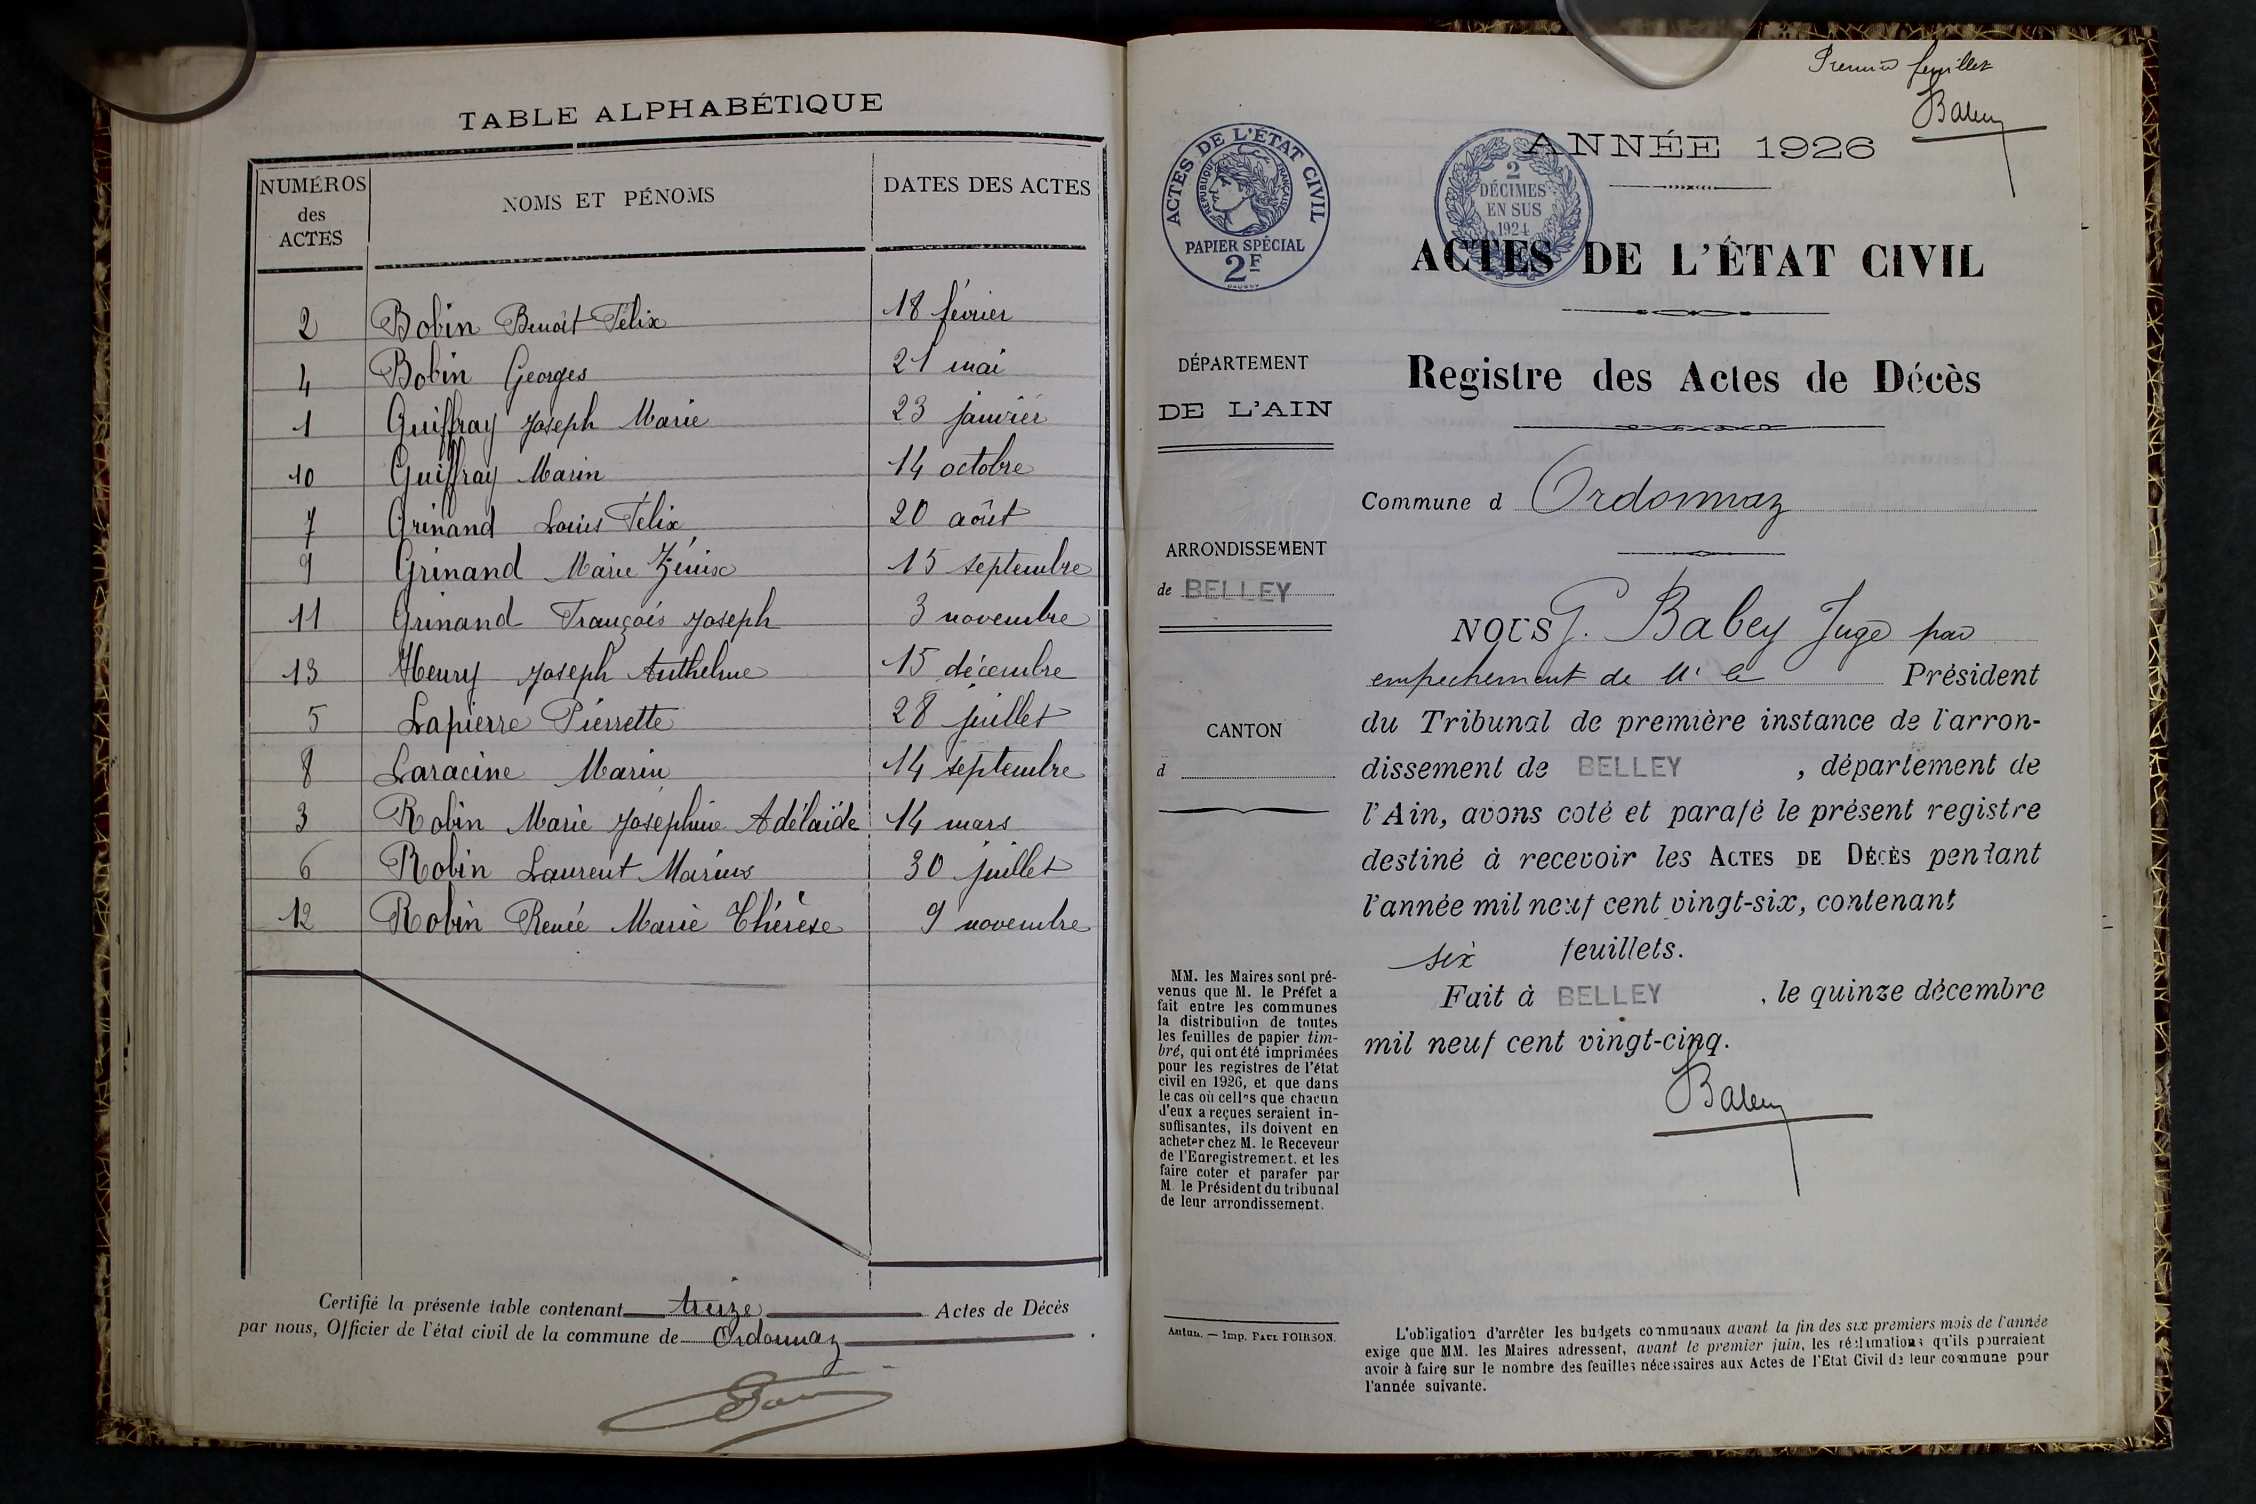 TABLE ALPHABÉTIQUE
NUMÉROS des ACTES NOMS ET PÉNOMS DATES DES ACTES
2 Bobin Benoît Félix 18 février
4 Bobin Georges 21 mai
1 Guiffray Joseph Marie 23 janvier
10 Guiffray Marin 14 octobre
7 Grinand Louis Félix 20 août
9 Grinand Marie 15 septembre
11 Grinand François Joseph 3 novembre
13 Henry Joseph Anthelme 15 décembre
5 Lapierre Pierrette 28 juillet
8 Laracine Marin 14 septembre
3 Robin Marie Joséphine Adélaïde 14 mars
6 Robin Laurent Marius 30 juillet
12 Robin Renée Marie Thérèse 9 novembre
Certifié la présente table contenant treize Actes de Décès
par nous, Officier de l'état civil de la commune de Ordonnaz
Premier feuillet
Babey
ACTES DE L'ÉTAT CIVIL
RÉPUBLIQUE FRANÇAISE
PAPIER SPÉCIAL
2F
2
DÉCIMES
EN SUS
1924
ANNÉE 1926
ACTES DE L'ÉTAT CIVIL
Registre des Actes de Décès
DÉPARTEMENT
DE L'AIN
ARRONDISSEMENT
de BELLEY
CANTON
d
MM. les Maires sont pré-
venus que M. le Préfet a
fait entre les communes
la distribution de toutes
les feuilles de papier tim-
bré, qui ont été imprimées
pour les registres de l'état
civil en 1926, et que dans
le cas où celles que chacun
d'eux a reçues seraient in-
suffisantes, ils doivent en
acheter chez M. le Receveur
de l'Enregistrement, et les
faire coter et parafer par
M. le Président du tribunal
de leur arrondissement.
Autun. — Imp. PAUL POIRSON.
Commune d Ordonnaz
NOUS G. Babey Juge par
empechement de Mr le Président
du Tribunal de première instance de l'arron-
dissement de BELLEY, département de
l'Ain, avons coté et parafé le présent registre
destiné à recevoir les ACTES DE DÉCÈS pendant
l'année mil neuf cent vingt-six, contenant
six feuillets.
Fait à BELLEY, le quinze décembre
mil neuf cent vingt-cinq.
Babey
L'obligation d'arrêter les budgets communaux avant la fin des six premiers mois de l'année
exige que MM. les Maires adressent, avant le premier juin, les réclamations qu'ils pourraient
avoir à faire sur le nombre des feuilles nécessaires aux Actes de l'Etat Civil de leur commune pour
l'année suivante.